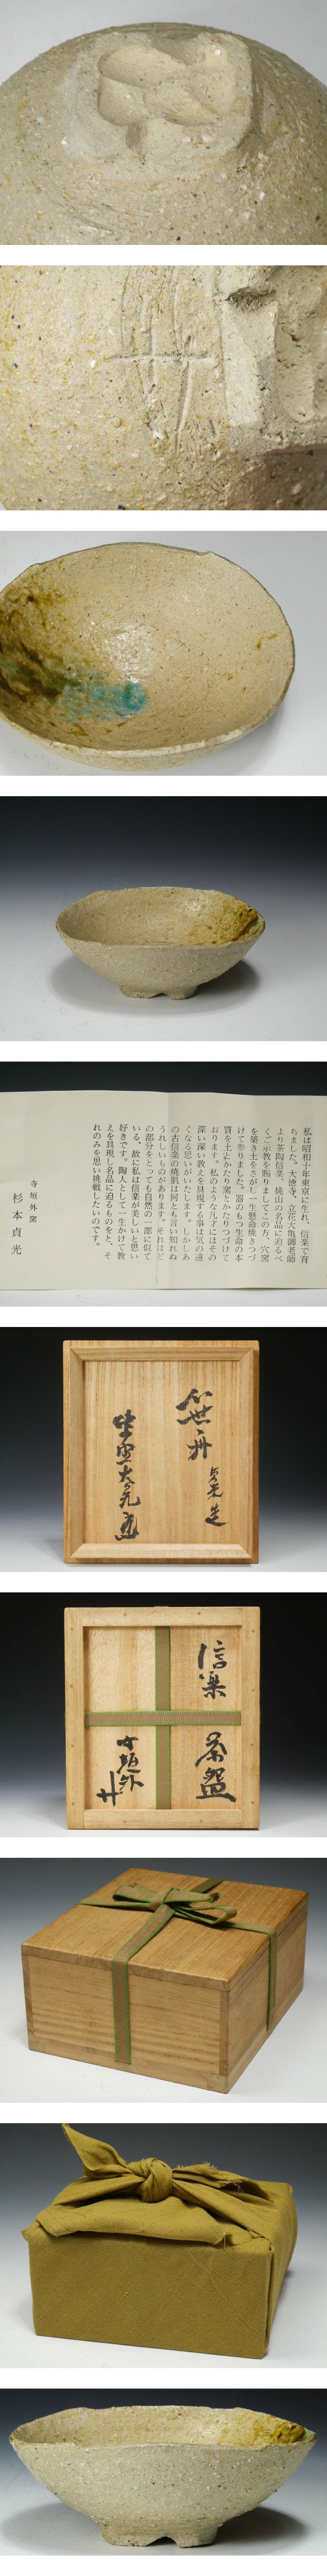 私は昭和十年東京に生れ、信楽で育
ちました。大徳寺、立花大亀御老師
より茶陶信楽、桃山の名品に迫るべ
くご示教を賜りましてこの方、穴窯
を築き土をさがし一生懸命焼きつづ
けて参りました。器のもつ生命の本
質を土とかたり窯とかたりつづけて
おります。私のような凡才にはその
深い深い教えを具現する事は気の遠
くなる思いがいたします。しかしあ
の古信楽の焼肌は何とも言い知れぬ
うれしいものがあります。それはど
の部分をとっても自然の一部に似て
いる、故に私は信楽が美しいと思い
好きです。陶人として一生かけて教
えを具現し名品に迫るものをと、そ
れのみを思い挑戦したいのです。
寺垣外窯
杉本貞光
貞光造
信楽
茶盌
寺垣外